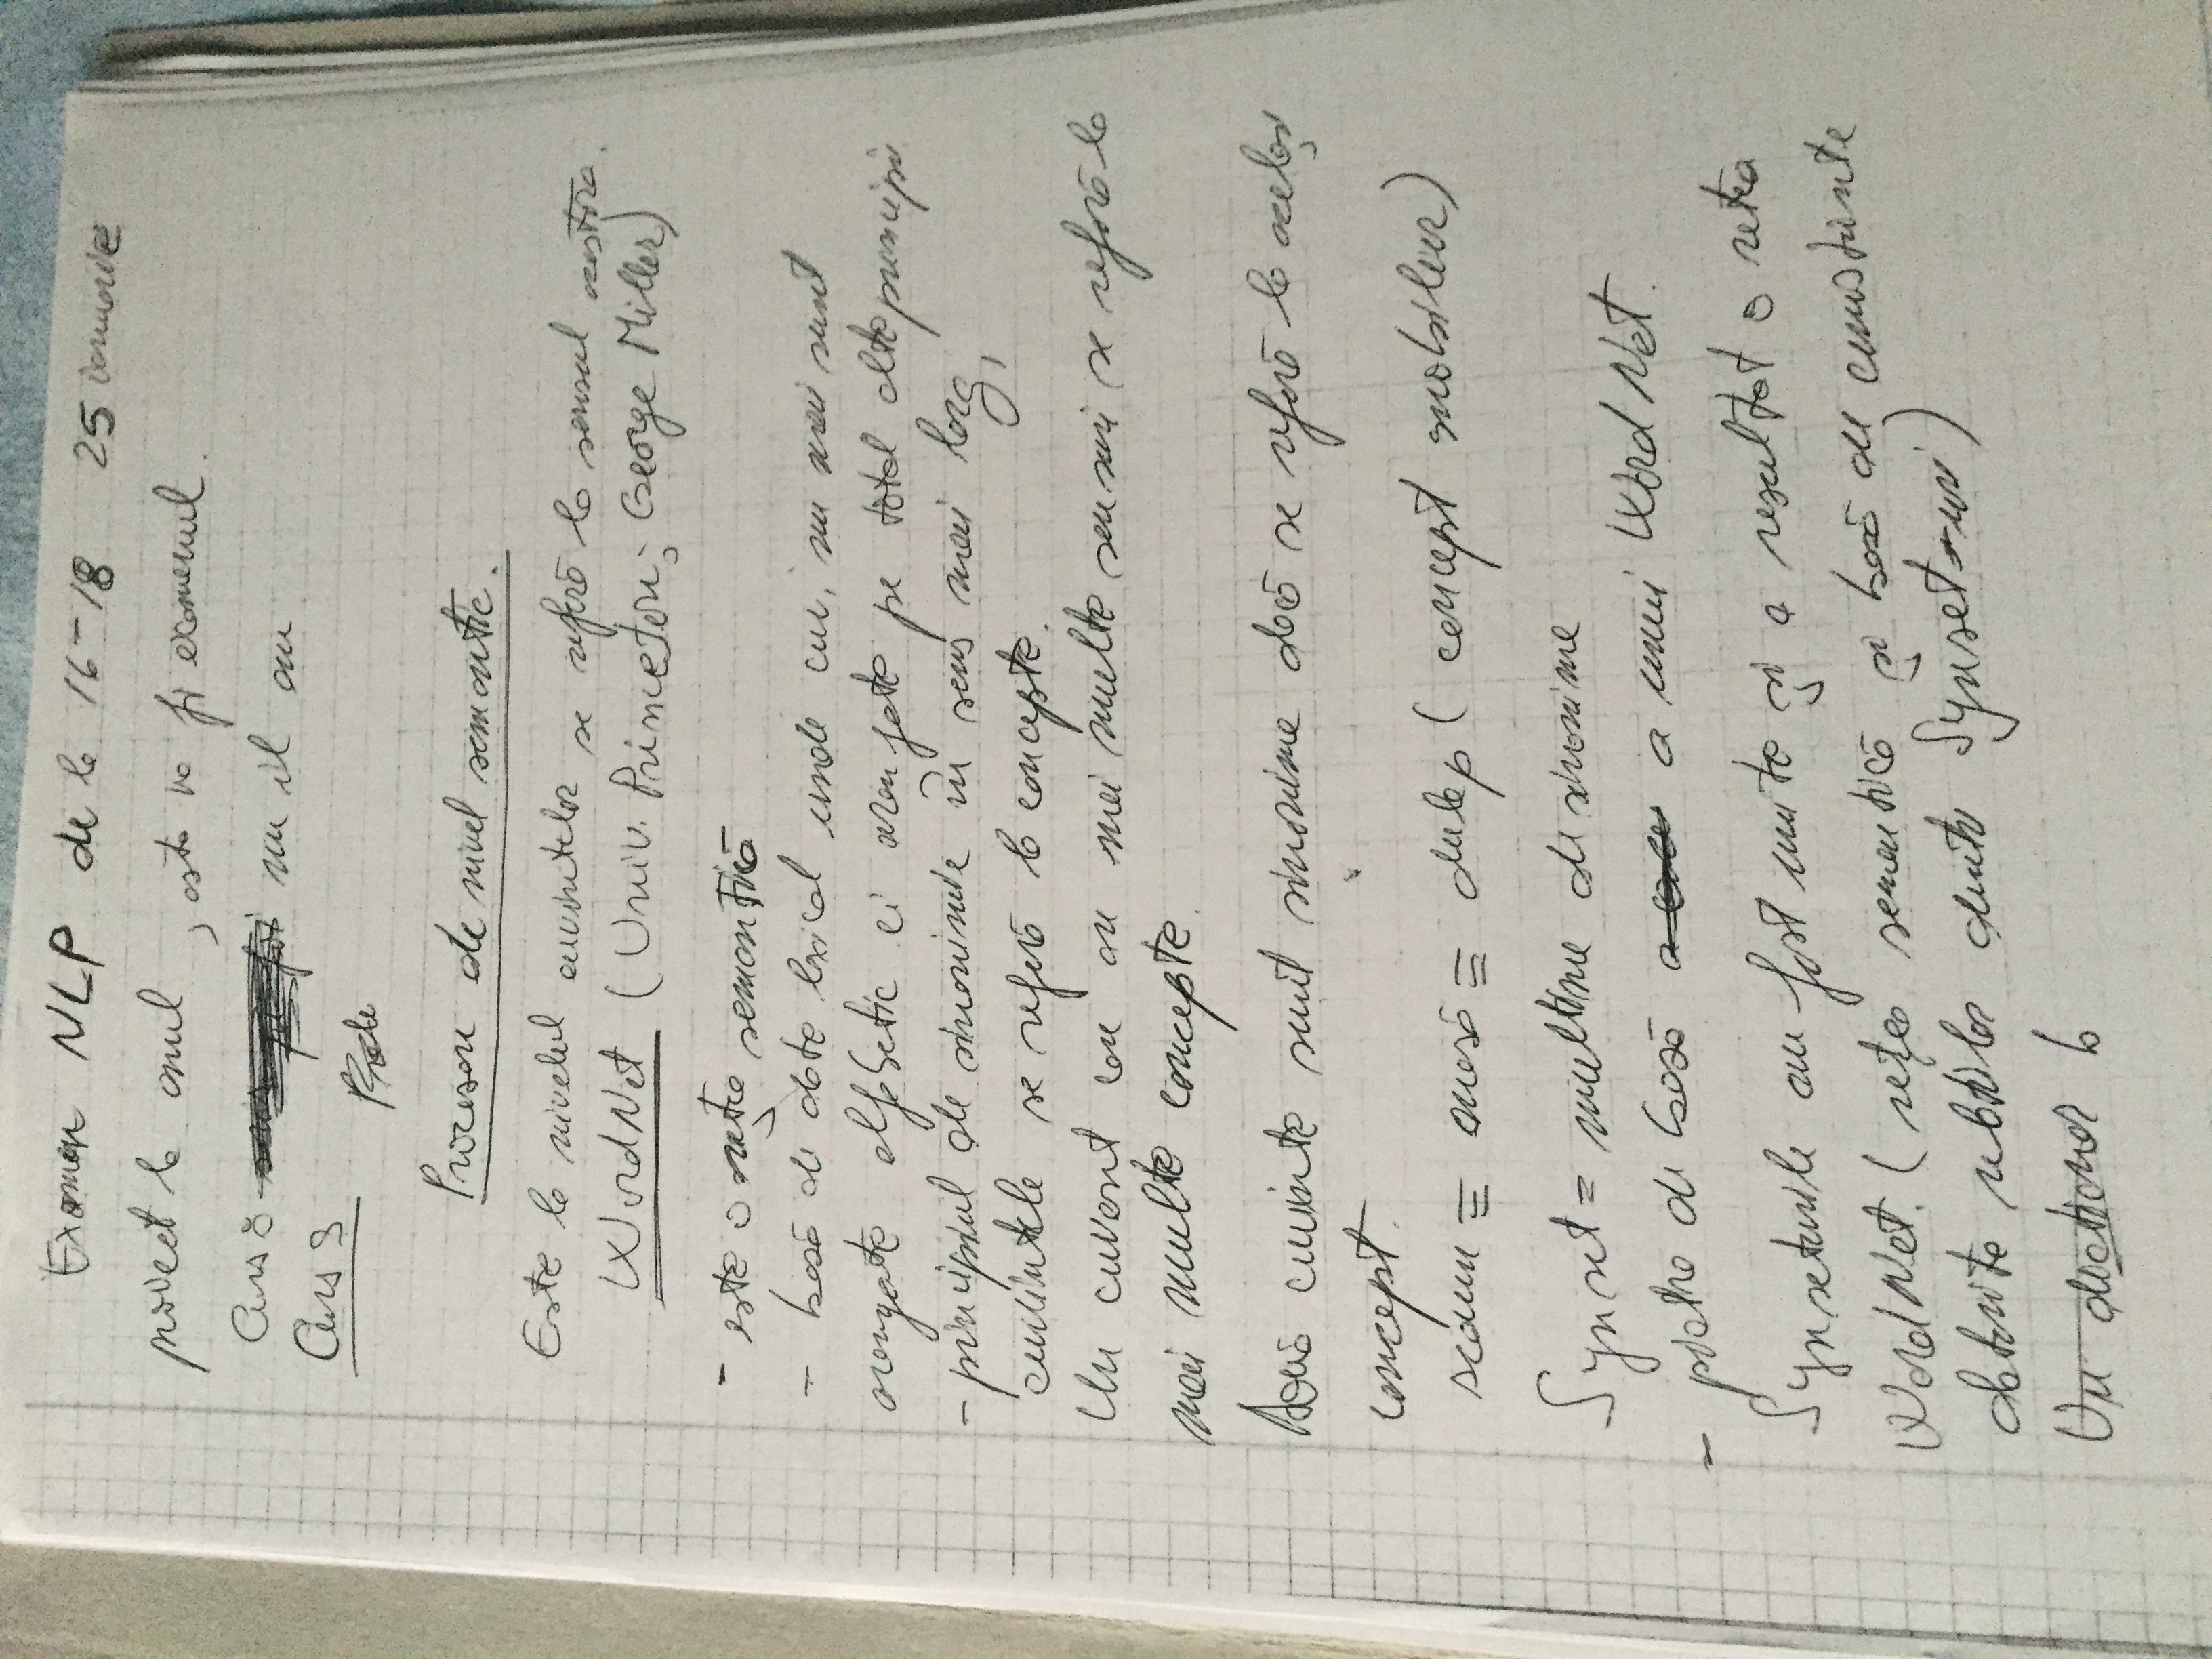 Examen NLP de la 16-18 25 ianuarie
proiect la anul, asta va fi examenul.
Curs 8 nu il am
Curs 9
Procesare de nivel semantic.
Este la nivelul cuvintelor se referă la sensul acestora.
WordNet (Univ. Princeton; George Miller)
- este o rețea semantică
- bază de date lexical unde cuv. nu mai sunt
aranjate alfabetic ci aranjate pe total alte principii
- principiul de sinonimie în sens mai larg,
cuvintele se referă la concepte.
Un cuvant care are mai multe sensuri se referă la
mai multe concepte.
Două cuvinte sunt sinonime dacă se referă la același
concept.
scaun ≡ masă ≡ dulap (concept mobilier)
Synset = multime de sinonime
- piatra de bază a unui WordNet.
Synseturile au fost unite și a rezultat o retea
WordNet. (rețea semantică și bază de cunostiinte
datorite relatiilor dintre Synset-uri)
Un dictionar la